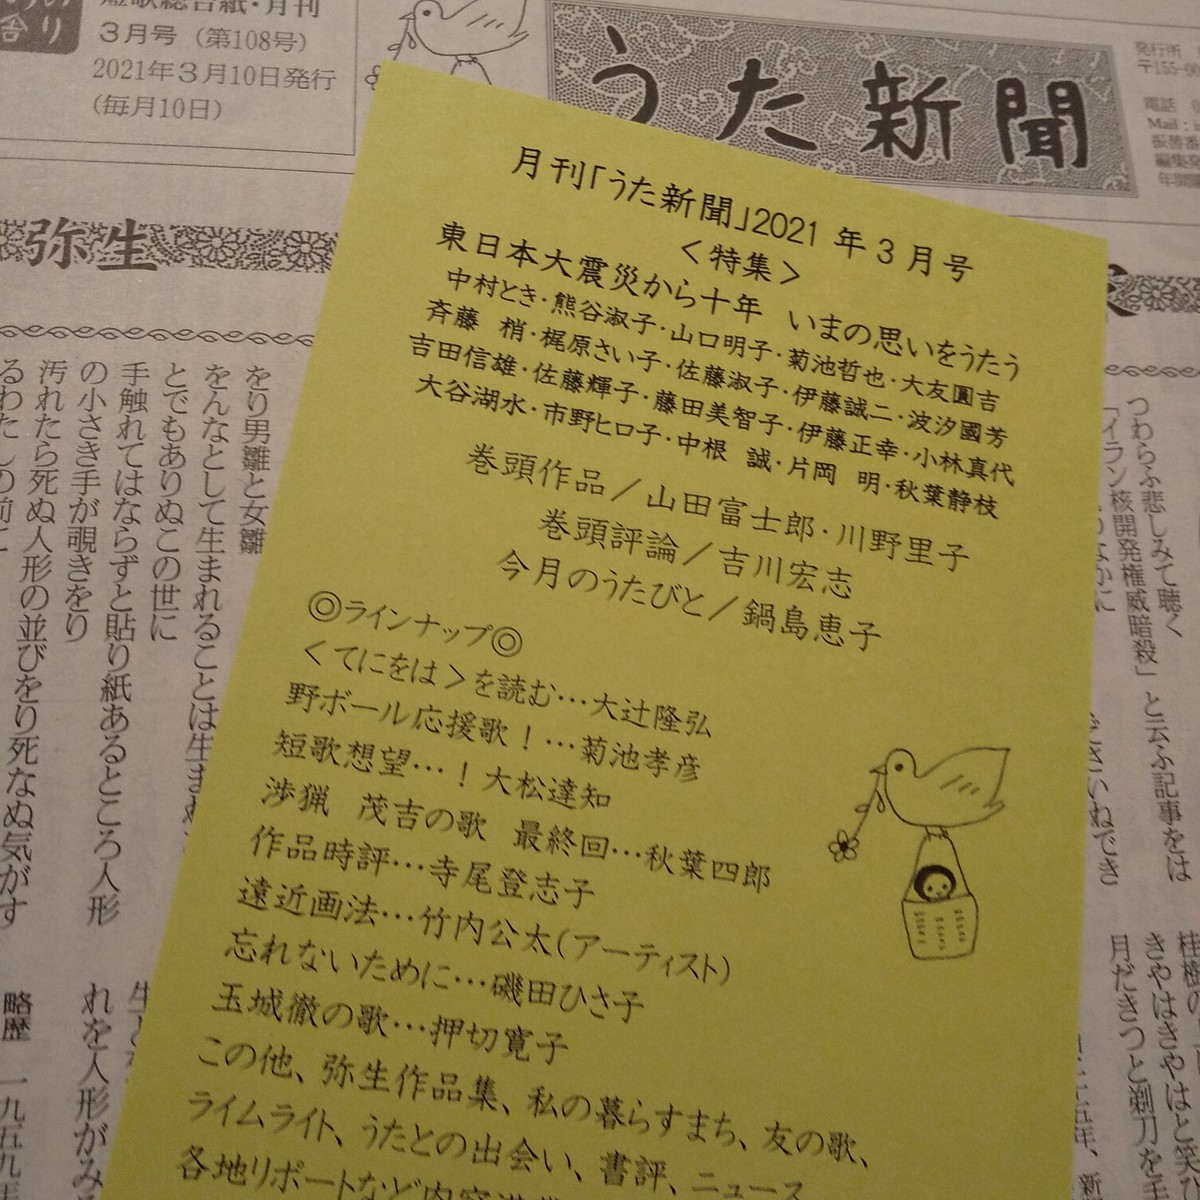 短歌総合紙・月刊
3月号（第108号）
2021年3月10日発行
(毎月10日)
うた新聞
発行所
電話
月刊「うた新聞」2021 年 3 月号
＜特集＞
東日本大震災から十年　いまの思いをうたう
中村とき・熊谷淑子・山口明子・菊池哲也・大友圓吉
斉藤　梢・梶原さい子・佐藤淑子・伊藤誠二・波汐國芳
吉田信雄・佐藤輝子・藤田美智子・伊藤正幸・小林真代
大谷湖水・市野ヒロ子・中根　誠・片岡　明・秋葉静枝
巻頭作品／山田富士郎・川野里子
巻頭評論／吉川宏志
今月のうたびと／鍋島恵子
◎ラインナップ◎
＜てにをは＞を読む…大辻隆弘
野ボール応援歌！…菊池孝彦
短歌想望…！大松達知
渉猟　茂吉の歌　最終回…秋葉四郎
作品時評…寺尾登志子
遠近画法…竹内公太(アーティスト)
忘れないために…磯田ひさ子
玉城徹の歌…押切寛子
この他、弥生作品集、私の暮らすまち、友の歌、
ライムライト、うたとの出会い、書評、ニュース
各地リポートなど内容
弥生
をり男雛と女雛
をんなとして生まれることは生まぬ
とでもありぬこの世に
手触れてはならずと貼り紙あるところ人形
の小さき手が覗きをり
汚れたら死ぬ人形の並びをり死なぬ気がす
るわたしの前に
れを人形がみ
略歴　一九五九年
つわらふ悲しみて聴く
「イラン核開発権威暗殺」と云ふ記事をは
きやはきやはと笑ひ
月だきつと剃刀を